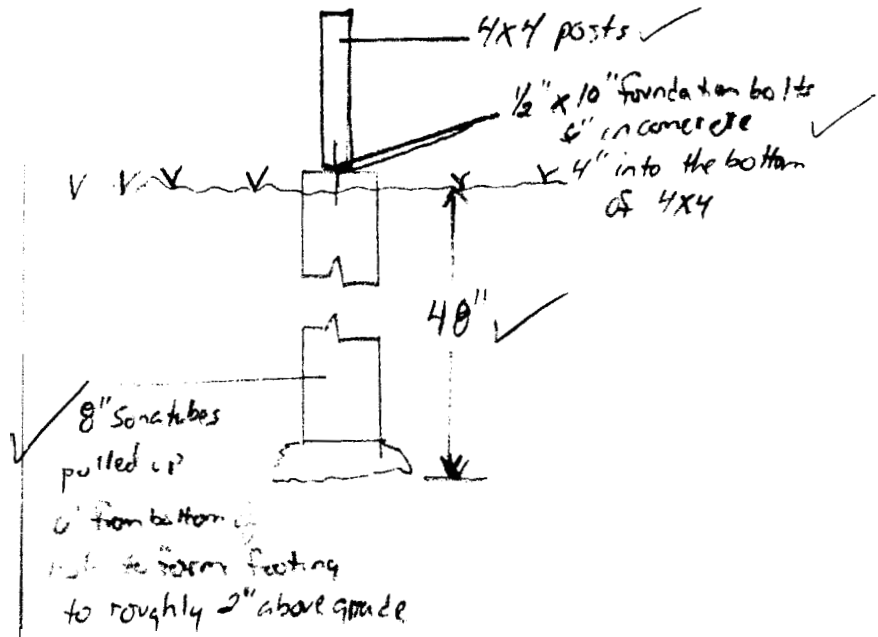 4X4 posts
1/2" x 10" foundation bolts
6" in concrete
4" into the bottom
of 4X4
48"
8" Sonatubes
pulled up
6" from bottom
to form footing
to roughly 2" above grade